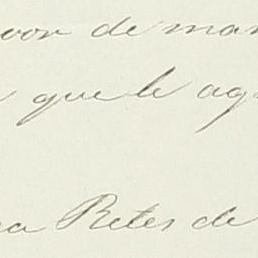 de man
que le ag
Retes de